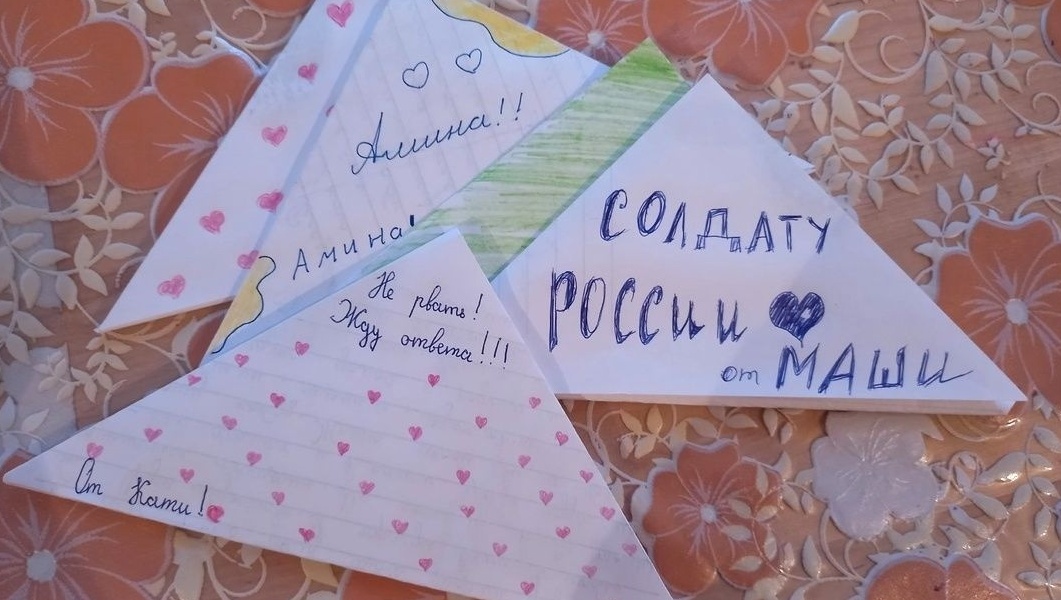 Амина!!
Амина!
СОЛДАТУ
РОССИИ
от МАШИ
Не рвать!
Жду ответа!!!
От Кати!